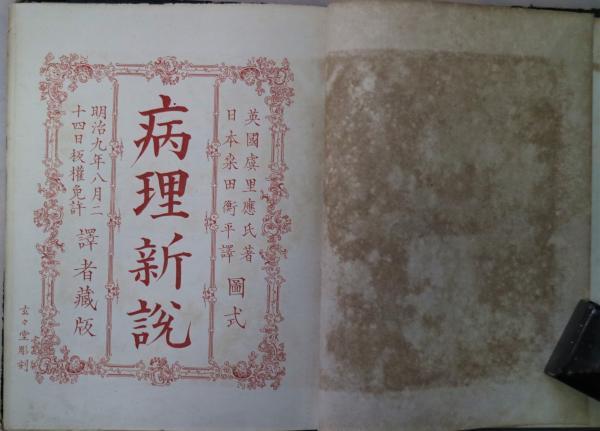 英國虞里應氏著
日本桒田衡平譯
圖式
病理新說
明治九年八月二
十四日板權免許
譯者藏版
玄々堂彫刻